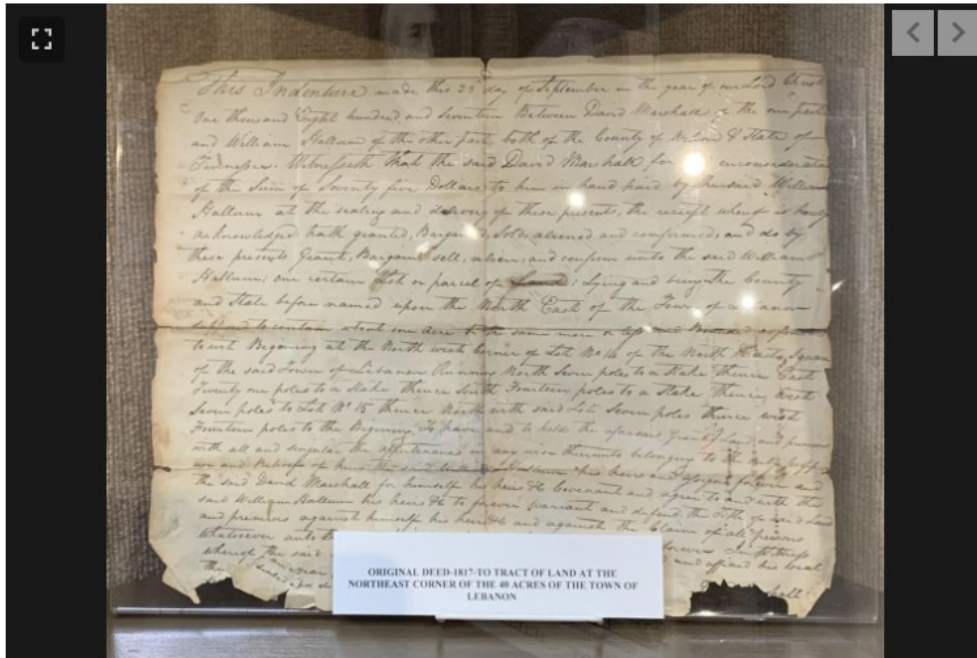 This Indenture made this 23d day of September in the year of our Lord Christ
One thousand Eight hundred and Seventeen Between David Marshall of the one part
and William Hallum of the other part both of the County of Wilson & State of
Tennessee. Witnesseth that the said David Marshall for inconsideration
of the Sum of Seventy five Dollars to him in hand paid by the said William
Hallum at the sealing and delivery of these presents, the receipt whereof is hereby
acknowledged hath granted, Bargained, Sold, aliened and confirmed, and do by
these presents Grant, Bargain, sell, alien, and confirm unto the said William
Hallum, one certain Lot or parcel of Land, lying and being the County
and State before named upon the North East of the Town of Lebanon
supposed to contain about one Acre be the same more or less and Bounded as follows
to wit Beginning at the North west Corner of Lot No 14 of the North East Square
of the said Town of Lebanon Running North Seven poles to a Stake thence East
Twenty one poles to a Stake thence South Fourteen poles to a Stake thence West
Seven poles to Lot No 15 thence North with said Lot Seven poles thence west
Fourteen poles to the Beginning To have and to hold the aforesaid Land and premises
with all and singular the appurtenances in any wise thereunto belonging to the only proper
use and Behoof of him the said Hallum his heirs and assigns forever and
the said David Marshall for himself his heirs &c Covenant and agree to and with the
said William Hallum his heirs &c to warrant and defend the Title of said Land
and premises against himself his heirs &c and against the Claims of all persons
whatever unto the forever In witness
whereof the said and affixed his seal
the
ORIGINAL DEED-1817-TO TRACT OF LAND AT THE
NORTHEAST CORNER OF THE 40 ACRES OF THE TOWN OF
LEBANON